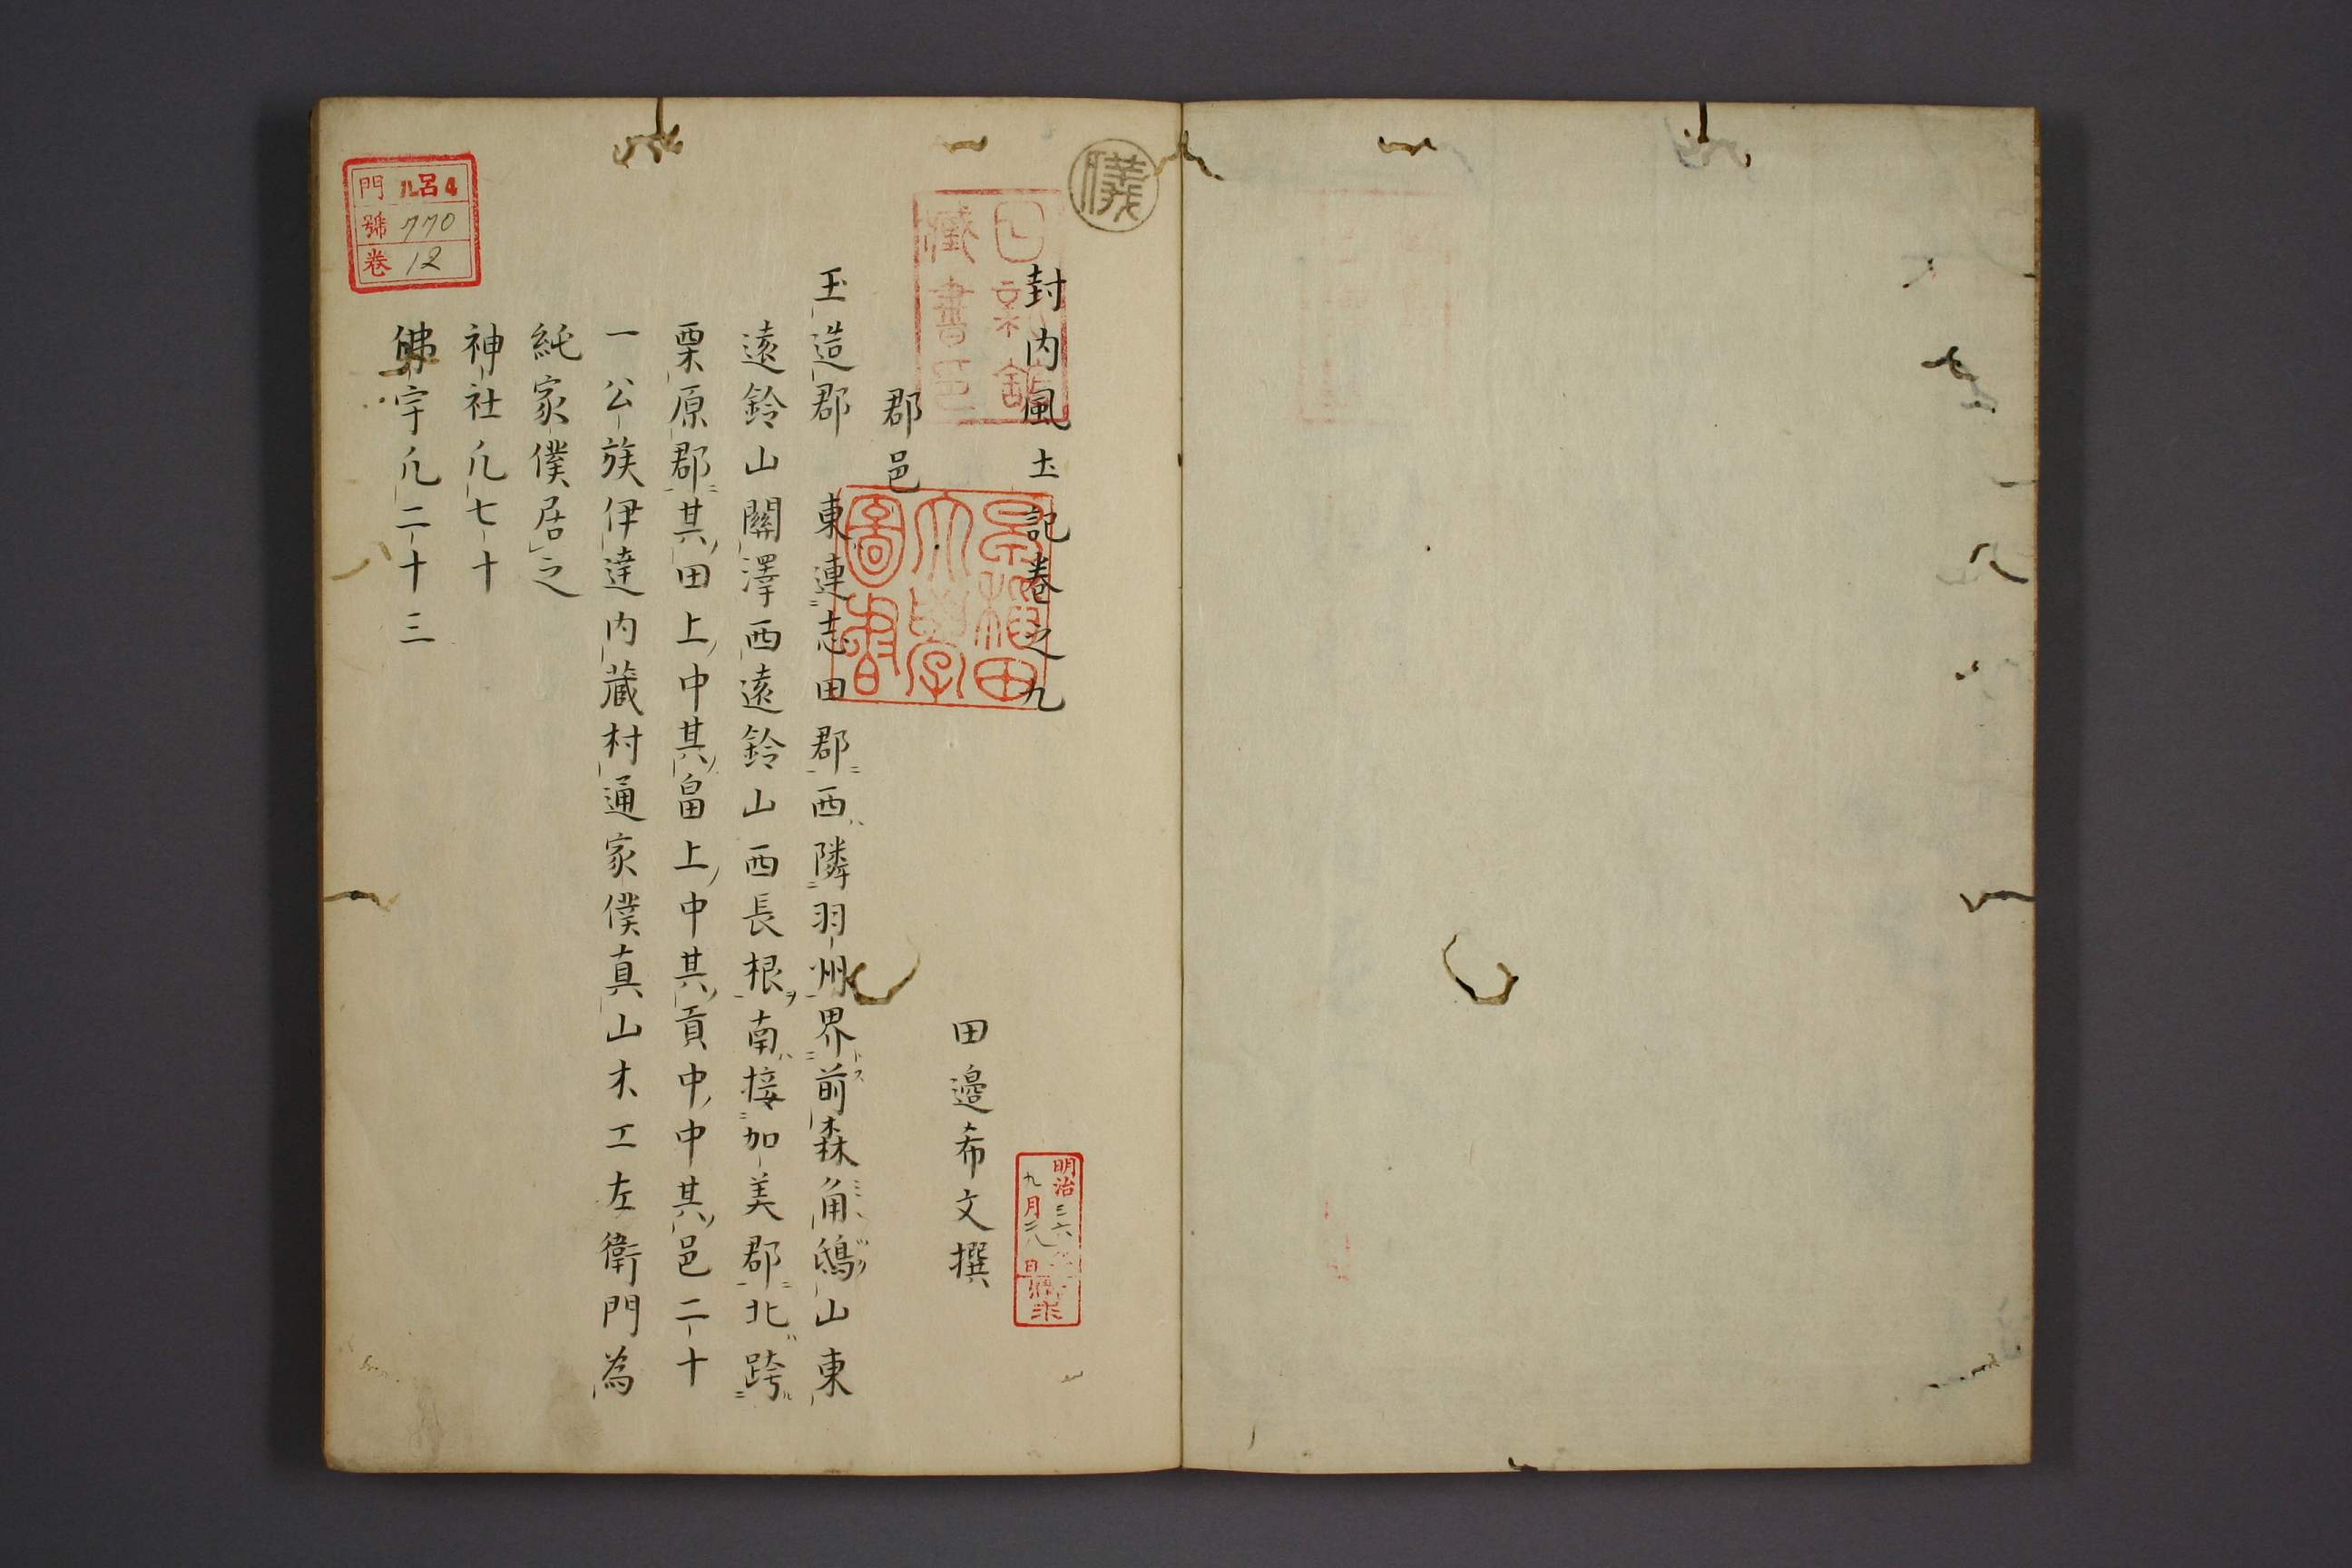 封内風土記巻之九
田邉希文撰
郡邑
玉造郡　東連志田郡西隣羽州界前森角鴟山東
遠鈴山關澤西遠鈴山西長根南接加美郡北跨
栗原郡其田上中其畠上中其貢中中其邑二十
一公族伊達内蔵村通家僕真山木工左衛門為
純家僕居之
神社凢七十
佛宇凢二十三
門 ル呂4
號 770
巻 12
早稲田
大學
圖書
藏書
明治三六年
九月二八日
購求